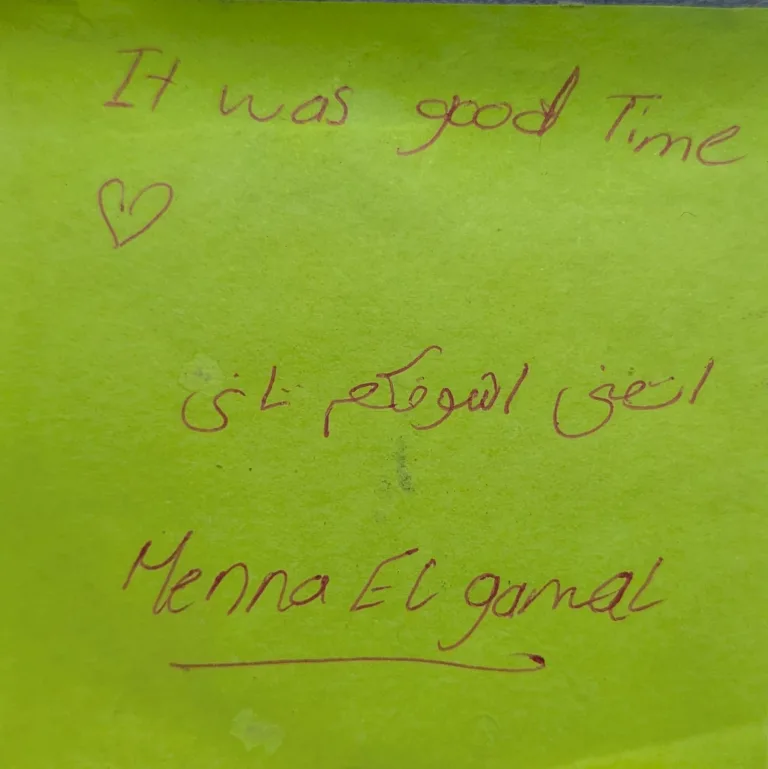 It was good Time
♡
اتمنى اشوفكم تانى
Menna El gamal